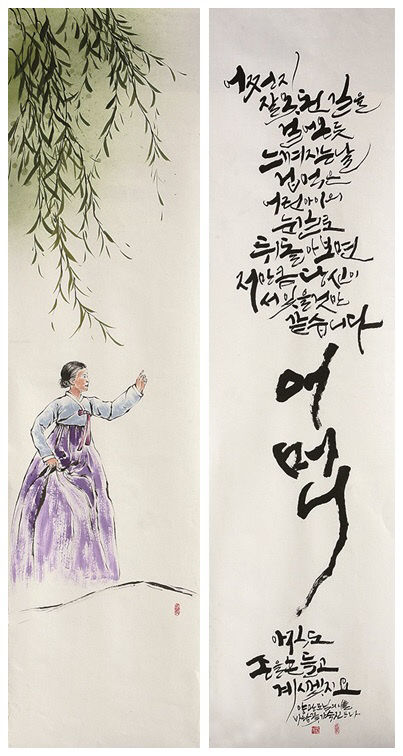 어쩐지
잘못 된 길을
걸어온 듯
느껴지는 날
겁먹은
어린아이의
눈빛으로
뒤돌아보면
저만큼 당신이
서 있을 것만
같습니다
어머니
아직도
손을 흔들고
계시겠지요